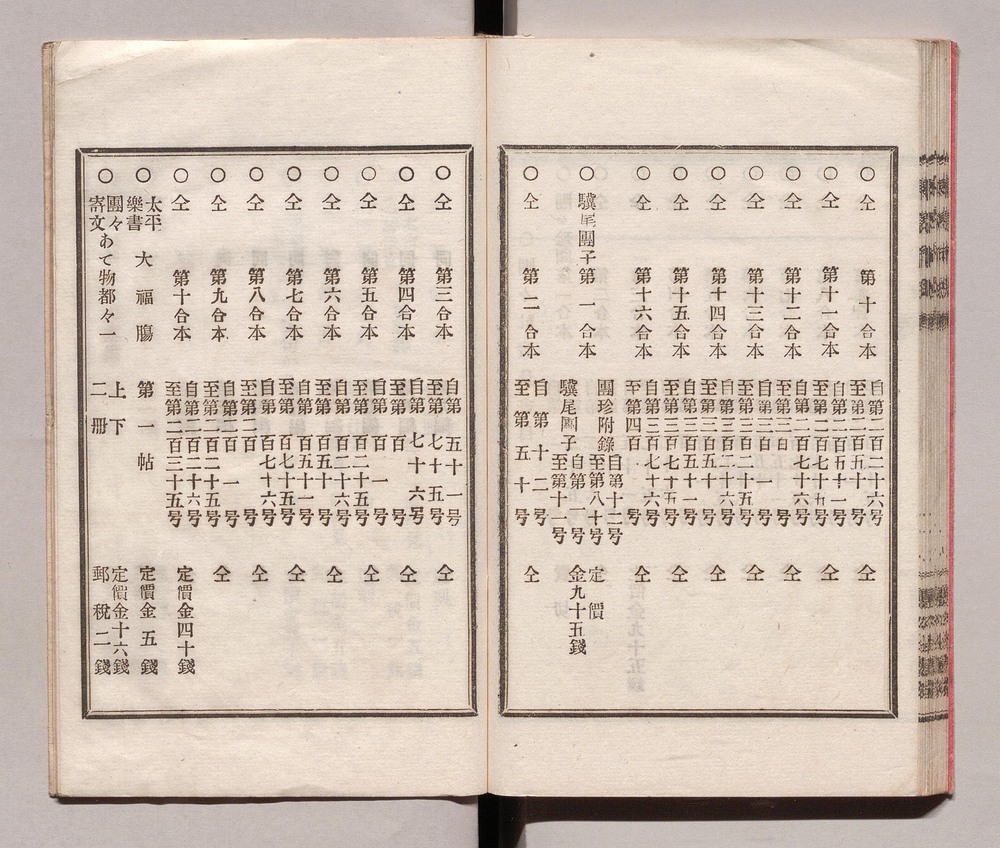 ○仝 第十合本 自第二百二十六号至第二百五十号
○仝 第十一合本 自第二百五十一号至第二百七十五号 仝
○仝 第十二合本 自第二百七十六号至第三百号 仝
○仝 第十三合本 自第三百一号至第三百二十五号 仝
○仝 第十四合本 自第三百二十六号至第三百五十号 仝
○仝 第十五合本 自第三百五十一号至第三百七十五号 仝
○仝 第十六合本 自第三百七十六号至第四百号 仝
○驥尾團子 第一合本 團珍附錄自第十二号至第八十号 驥尾團子自第一号至第十一号 定價金九十五錢
○仝 第二合本 自第十二号至第五十号 仝
○仝 第三合本 自第五十一号至第七十五号 仝
○仝 第四合本 自第七十六号至第百号 仝
○仝 第五合本 自第百一号至第百二十五号 仝
○仝 第六合本 自第百二十六号至第百五十号 仝
○仝 第七合本 自第百五十一号至第百七十五号 仝
○仝 第八合本 自第百七十六号至第二百号 仝
○仝 第九合本 自第二百一号至第二百二十五号 仝
○仝 第十合本 自第二百二十六号至第二百三十五号 定價金四十錢
○太平樂書 大福膓 第一帖 定價金五錢
○團々寄文 あて物都々一 上下二冊 定價金十六錢郵稅二錢